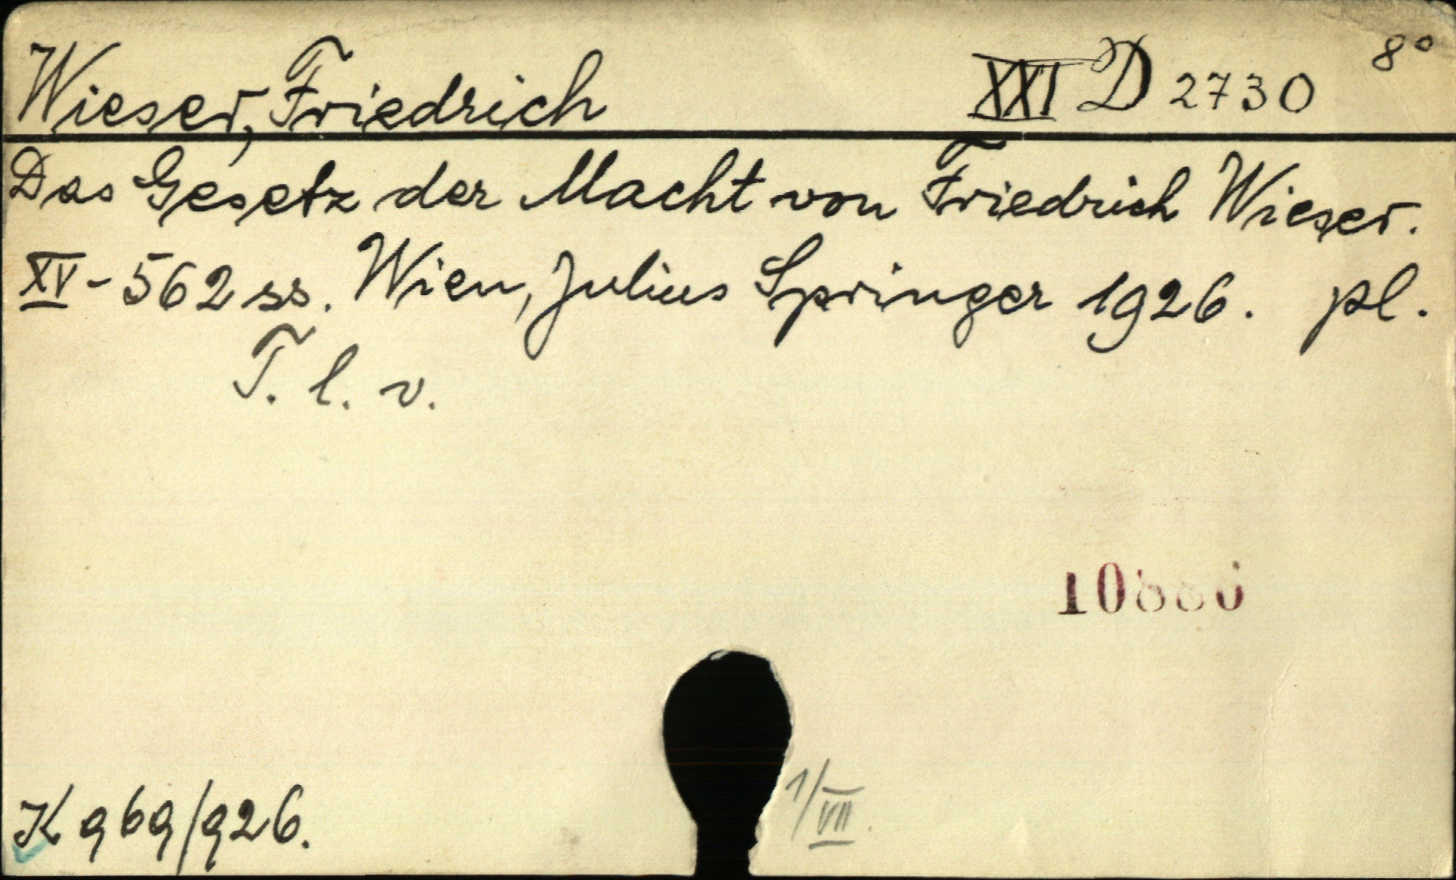 Wieser, Friedrich XXI D 2730 8°
Das Gesetz der Macht von Friedrich Wieser.
XV-562 ss. Wien, Julius Springer 1926. pl.
T. l. v.
10886
K 969/926.
1/VII